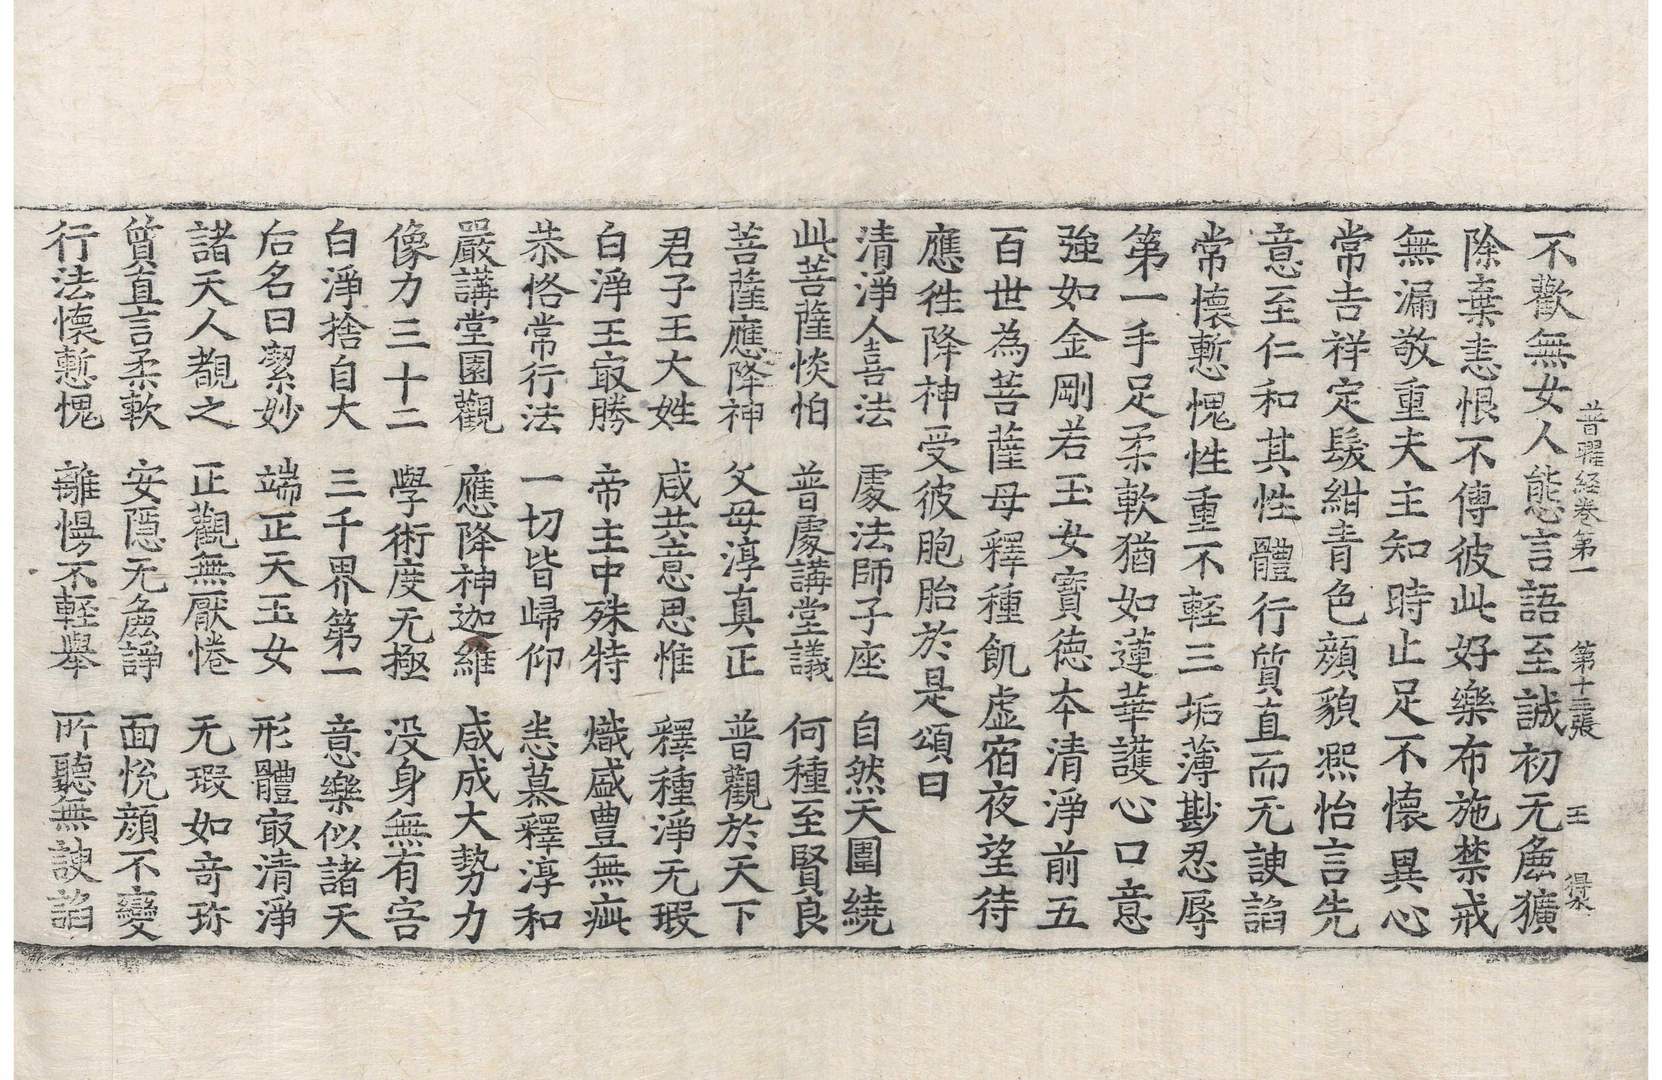 普曜経卷第一 第十三張 王 得水
不歡無女人態言語至誠初无麁獷
除棄恚恨不傳彼此好樂布施禁戒
無漏敬重夫主知時止足不懷異心
常吉祥定髮紺青色顔貌熈怡言先
意至仁和其性體行質直而无諛諂
常懷慙愧性重不輕三垢薄尠忍辱
第一手足柔軟猶如蓮華護心口意
強如金剛若玉女寳徳本清淨前五
百世為菩薩母釋種飢虛宿夜望待
應徃降神受彼胞胎於是頌曰
清淨人喜法 處法師子座 自然天圍繞
此菩薩惔怕 普處講堂議 何種至賢良
菩薩應降神 父母淳真正 普觀於天下
君子王大姓 咸共意思惟 釋種淨无瑕
白淨王㝡勝 帝主中殊特 熾盛豊無疵
恭恪常行法 一切皆歸仰 恙慕釋淳和
嚴講堂園觀 應降神迦維 咸成大勢力
像力三十二 學術度无極 没身無有害
白淨捨自大 三千界第一 意樂似諸天
后名曰潔妙 端正天玉女 形體㝡清淨
諸天人覩之 正觀無厭惓 无瑕如竒珎
質直言柔軟 安隠无麁諍 面悅顔不變
行法懷慙愧 離慢不輕舉 所聽無諛諂